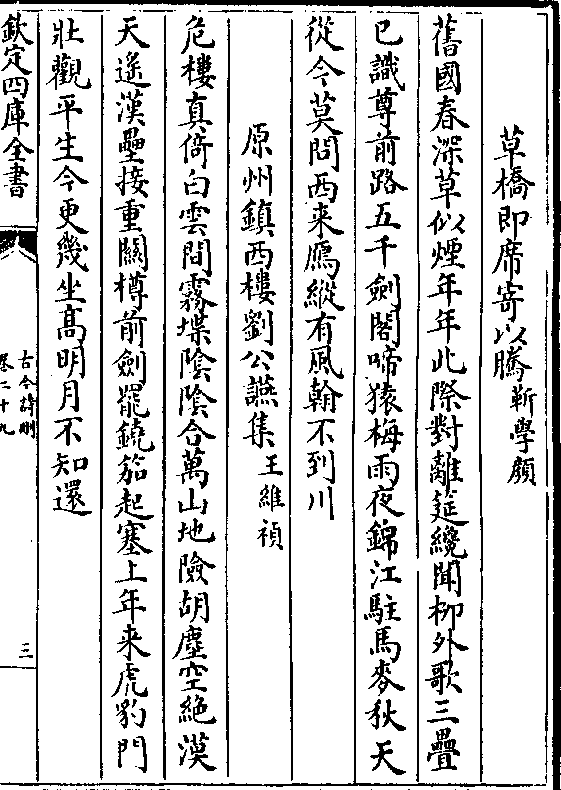 草橋即席寄以騰靳學顔
舊國春深草似煙年年此際對離筵纔聞栁外歌三疊
已識尊前路五千劍閣啼猿梅雨夜錦江駐馬麥秋天
從今莫問西来鴈縱有風翰不到川
原州鎮西樓劉公讌集王維禎
危樓真倚白雲間霧堞陰陰合萬山地險胡塵空絶漠
天遥漢壘接重關樽前劍罷鐃笳起塞上年来虎豹門
壯觀平生今更幾坐髙明月不知還
欽定四庫全書
古今詩刪
卷二十九
三